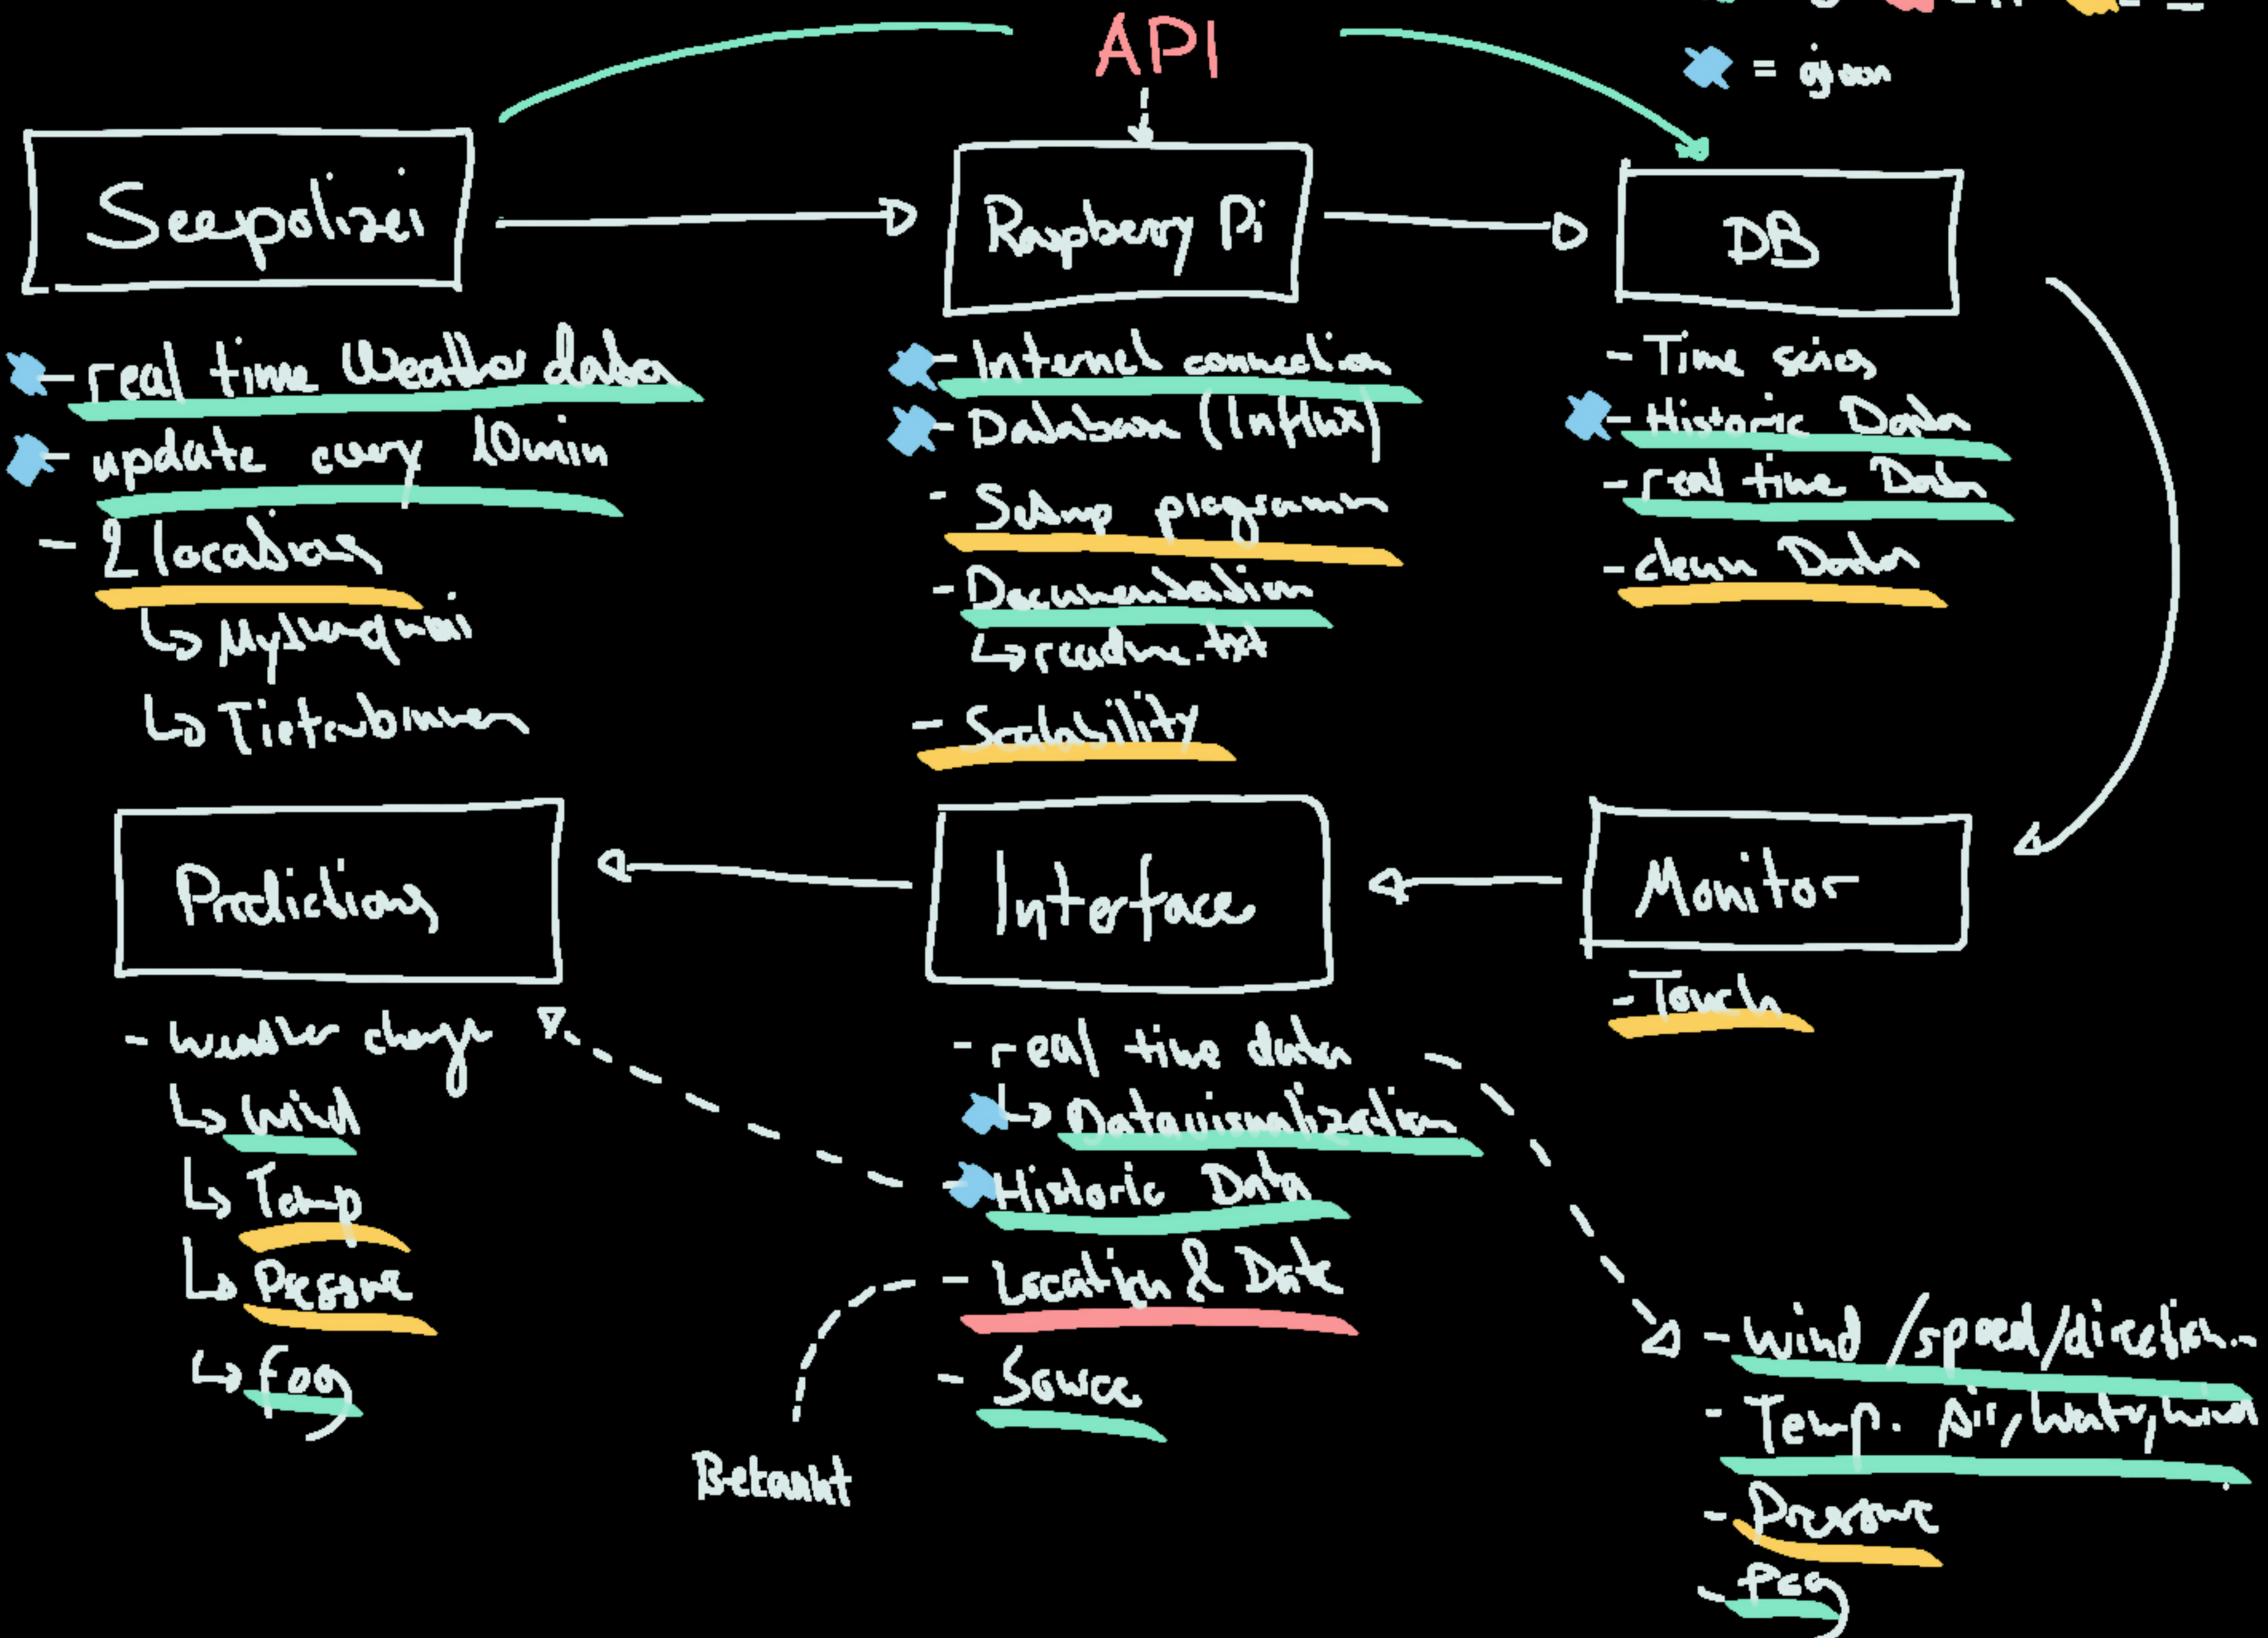 API
= given
Seepolizei
Raspberry Pi
DB
- real time Weather data
- update every 10min
- 2 locations
↳ Mythenquai
↳ Tiefenbrunnen
- Internet connection
- Database (Influx)
- Setup programm
- Documentation
↳ readme.txt
- Scalability
- Time series
- Historic Data
- real time Data
- clean Data
Predictions
Interface
Monitor
- weather change
↳ Wind
↳ Temp
↳ Pressure
↳ fog
- real time data
↳ Datavisualization
- Historic Data
- Location & Date
- Source
Bekannt
- Touch
- Wind /speed/direction
- Temp. Air, water, wind
- Pressure